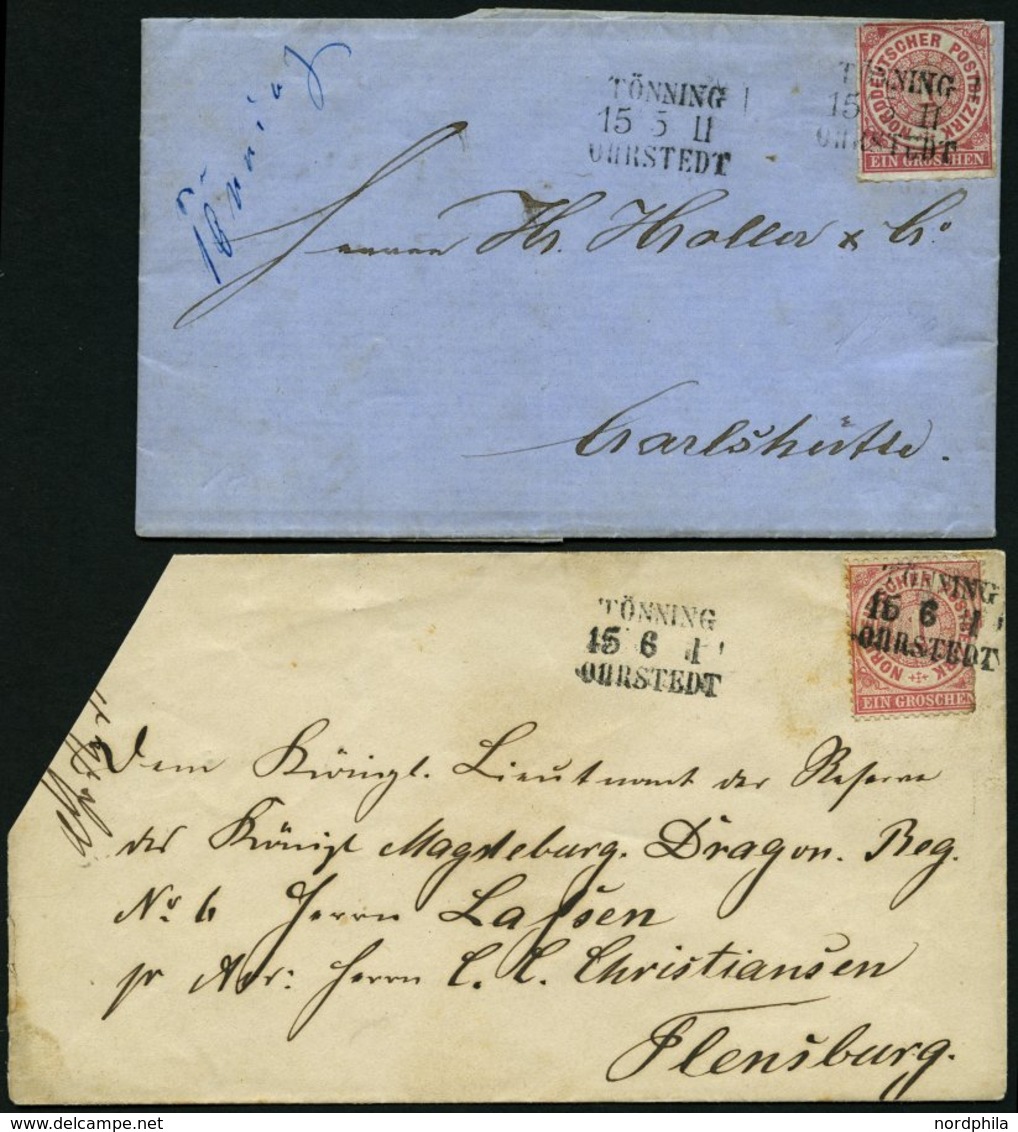 Tönning
TÖNNING
15 5 11
OHRSTEDT
TÖNNING
15 5 11
OHRSTEDT
NORDDEUTSCHER POSTBEZIRK
EIN GROSCHEN
Herren Th. Holler & Co.
Carlshütte.
TÖNNING
15 6 1
OHRSTEDT
TÖNNING
15 6 1
OHRSTEDT
NORDDEUTSCHER POSTBEZIRK
EIN GROSCHEN
Dem Königl. Lieutnant der Reserve
des Königl Magdeburg. Dragon. Reg.
No 6 Herrn Laſsen
pr Adr: Herrn C. C. Christiansen
Flensburg.
www.delcampe.net
nordphila